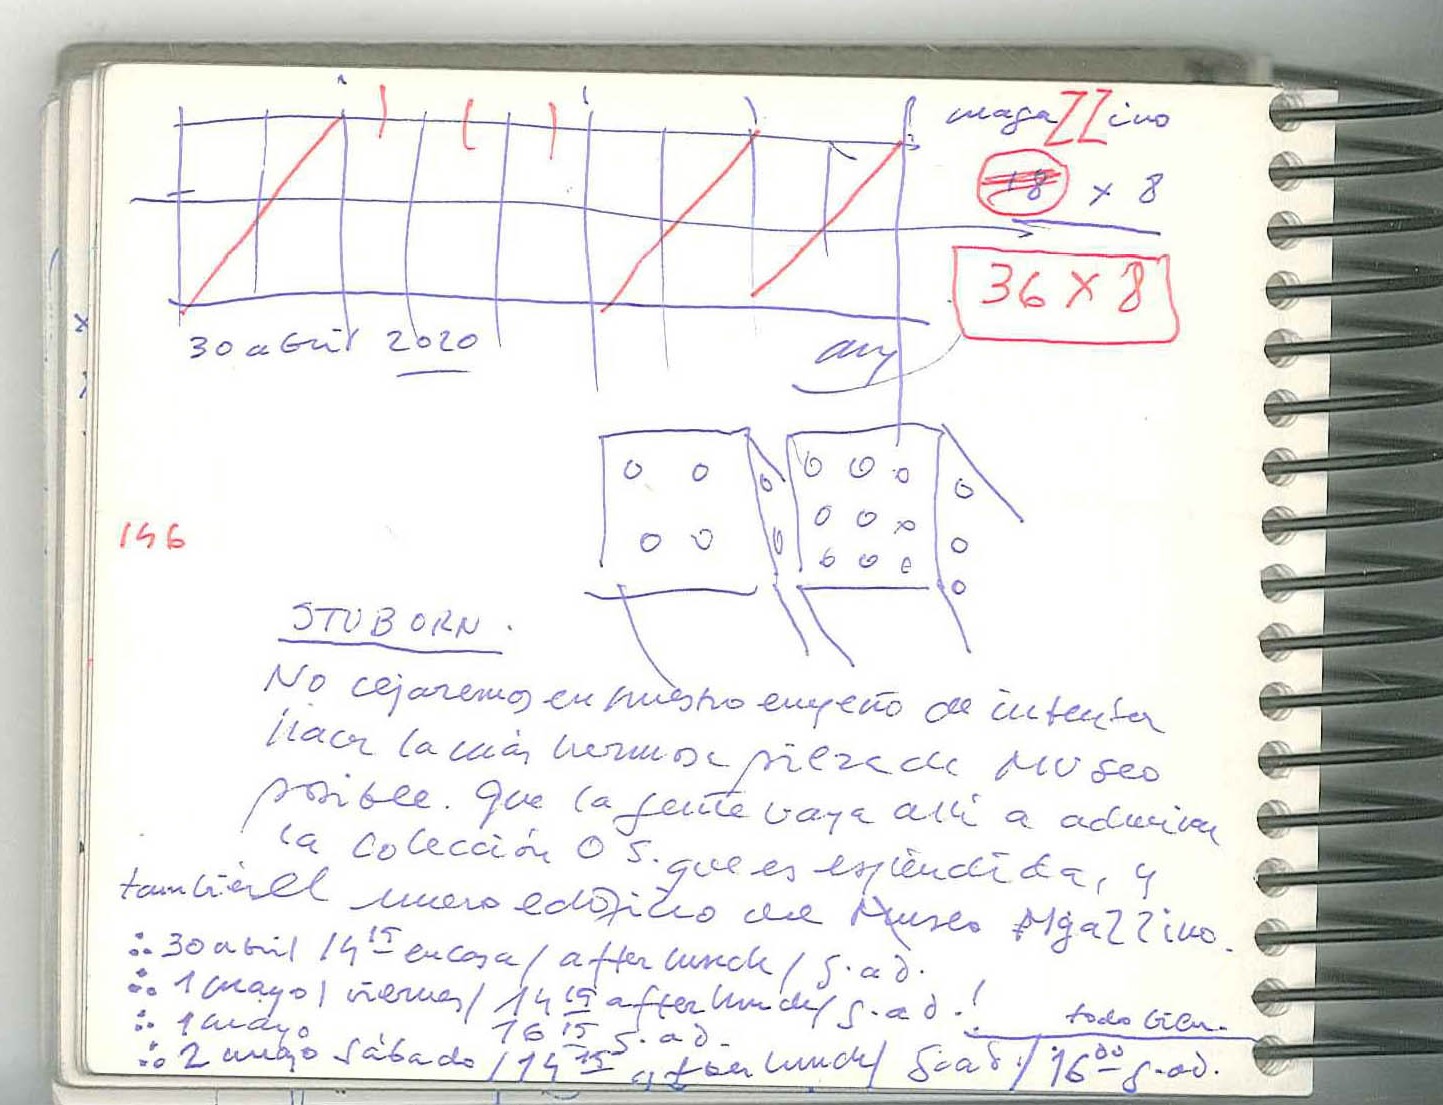 magaZZino
18 x 8
36 x 8
30 abril 2020
146
STUBORN.
No cejaremos en nuestro empeño de intentar
hacer la más hermosa pieza de Museo
posible. Que la gente vaya allí a admirar
la colección O S. que es espléndida, y
también el nuevo edificio del Museo MgaZZino.
30 abril 14 15 en casa / after lunch / g.ad.
1 mayo / viernes / 14 15 after lunch / g.ad.!
todo bien.
1 mayo 16 15 g.ad.
2 mayo sábado / 14 15 after lunch / g.ad. / 16 00 g.ad.